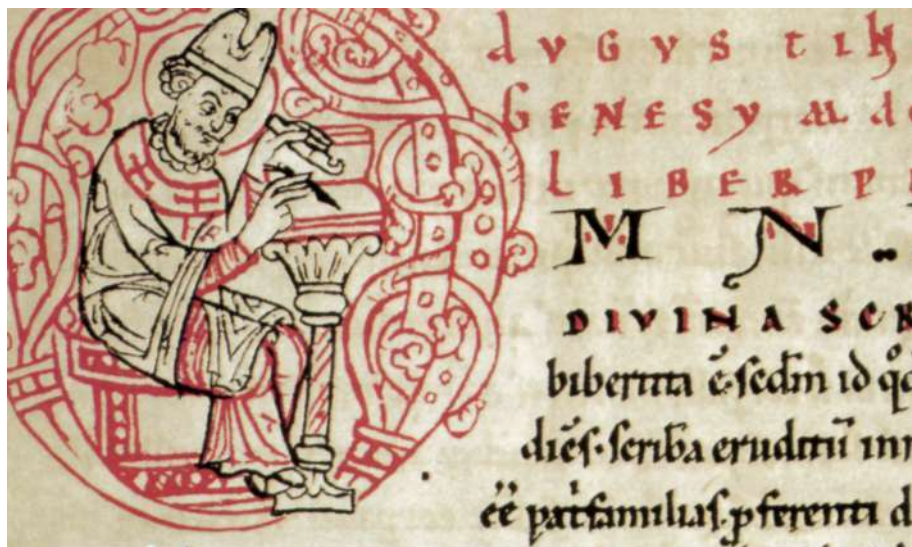 AUGUSTIN
GENESYM
LIBER P
M N
DIVINA SCR
bibertita ē·scd̄m id
dieſ·ſcriba eruditū
pat̄familiaſ·ꝓferenti d